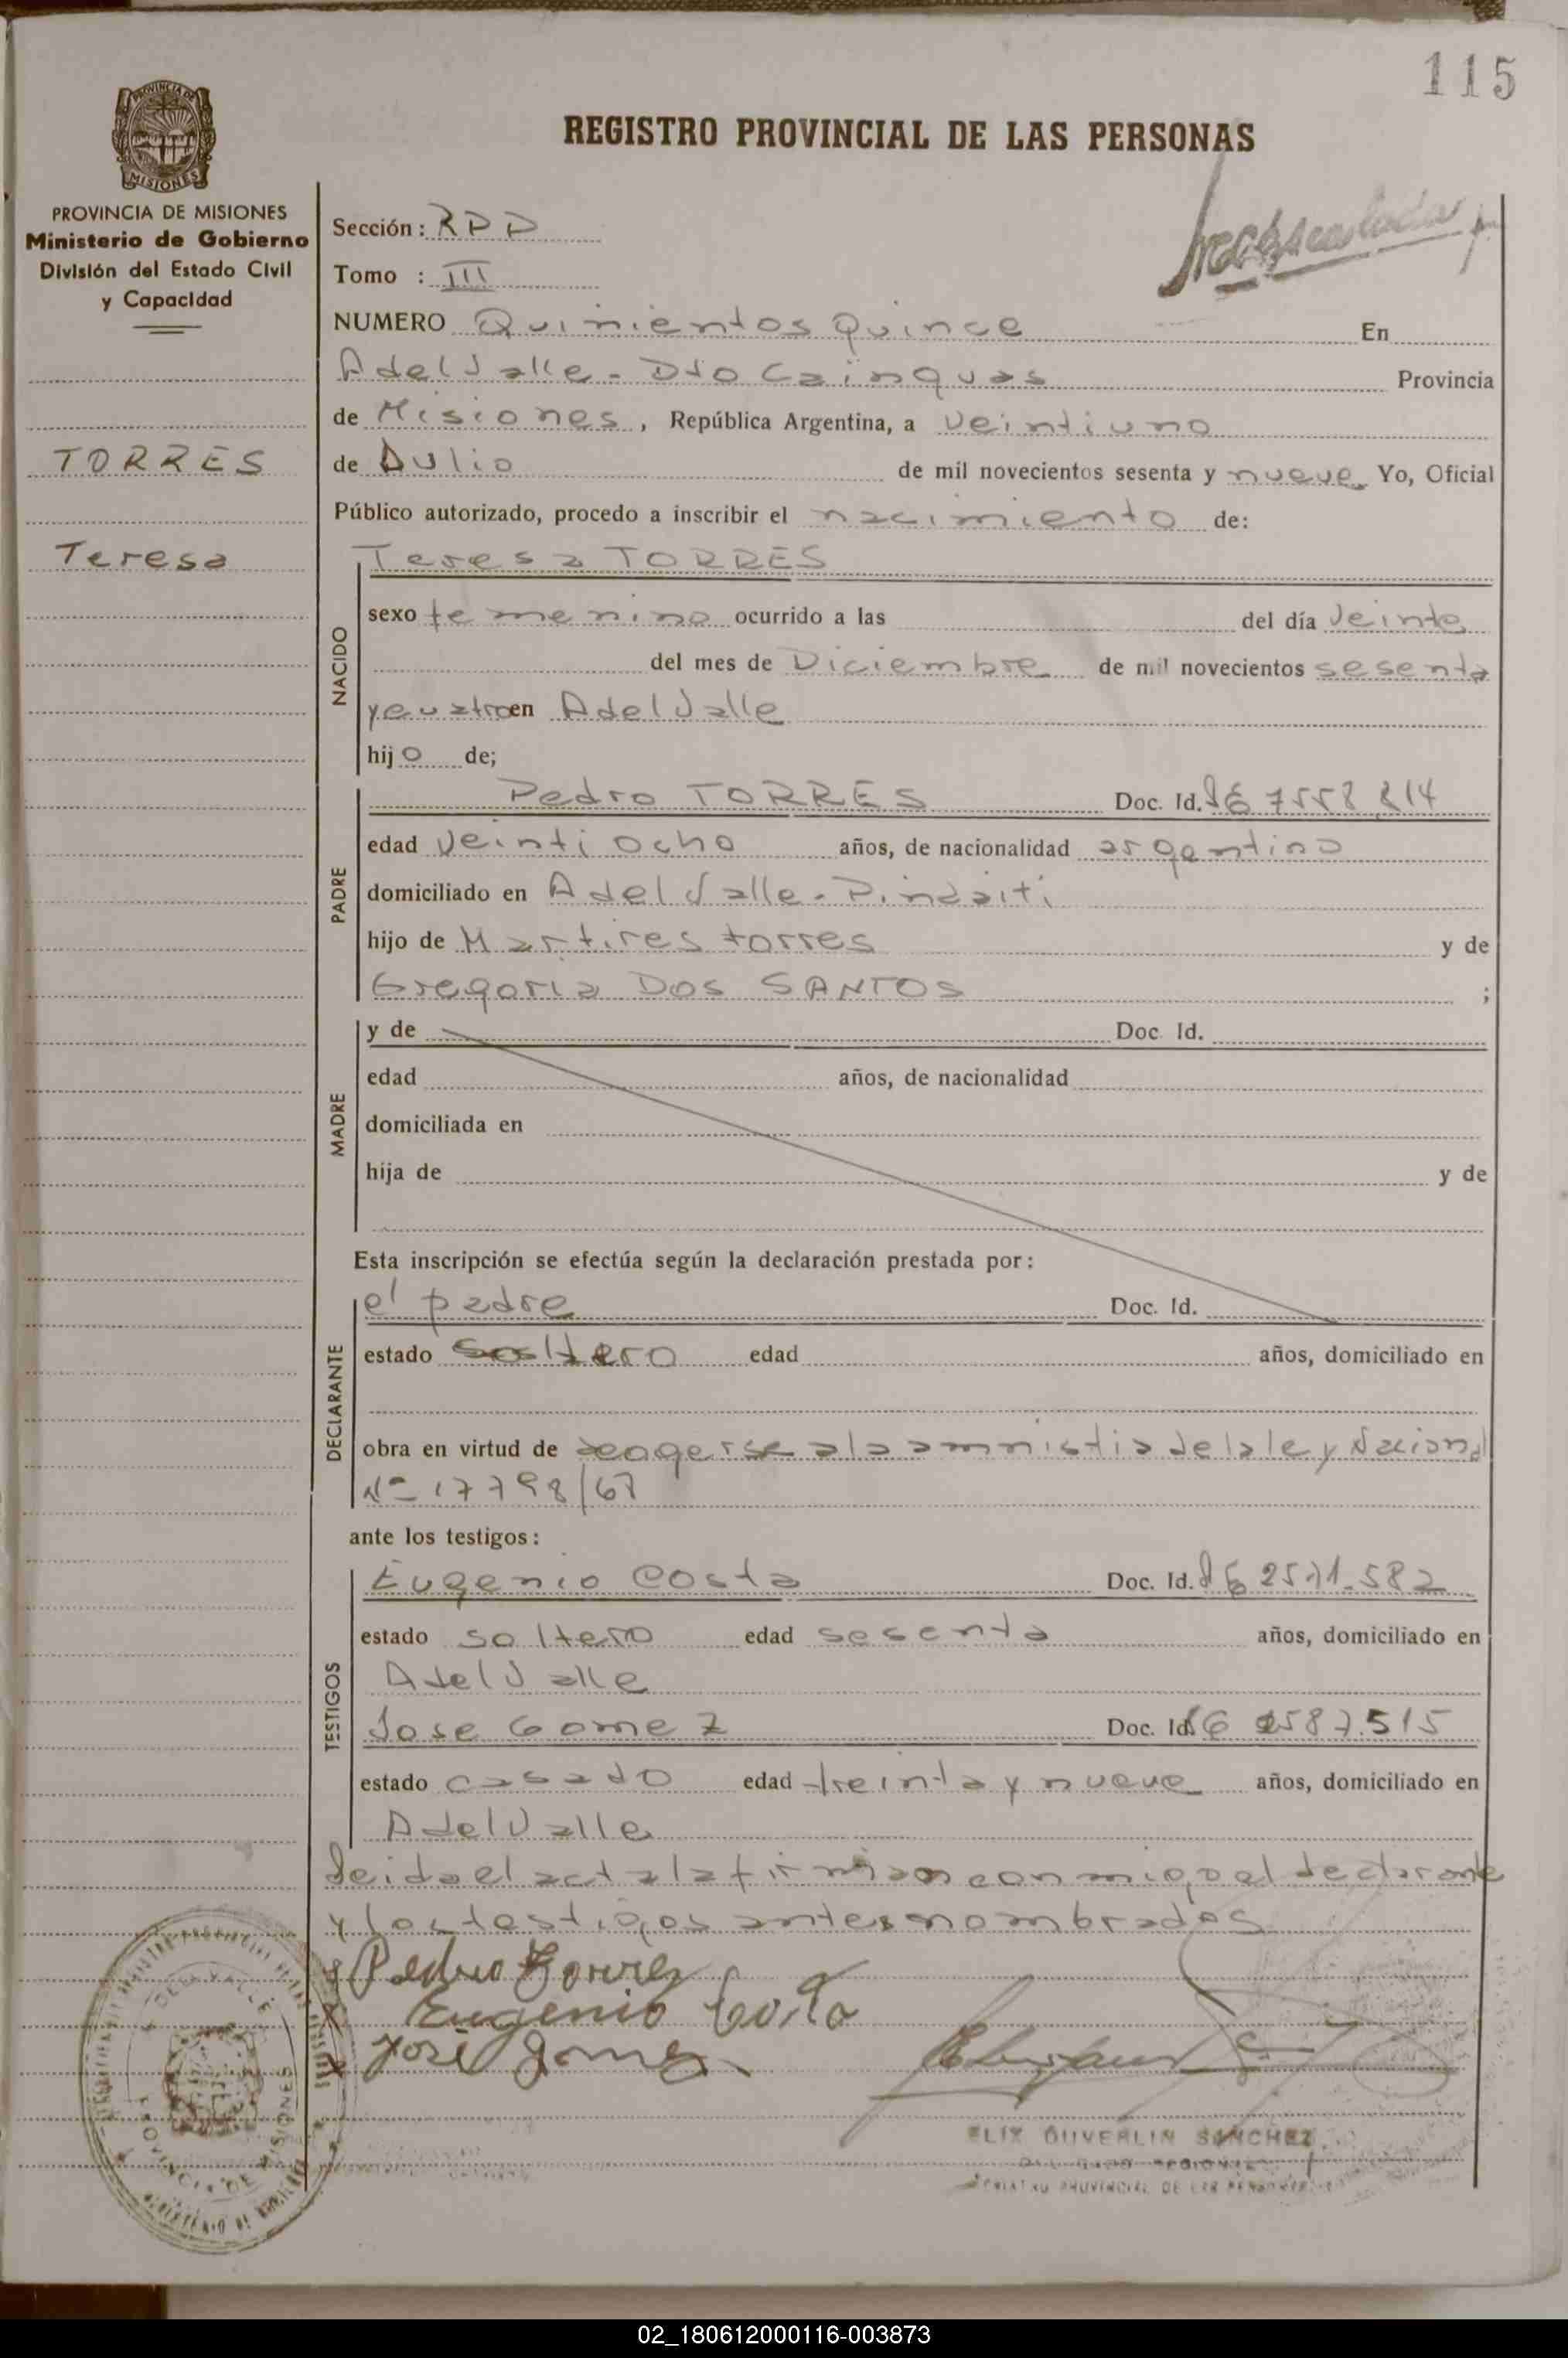 115
REGISTRO PROVINCIAL DE LAS PERSONAS
PROVINCIA DE
MISIONES
PROVINCIA DE MISIONES
Ministerio de Gobierno
División del Estado Civil
y Capacidad
TORRES
Teresa
Sección: RDD
Tomo : III
NUMERO Quinientos Quince En
A del Valle - Dto Cainguas Provincia
de Misiones, República Argentina, a veintiuno
de Julio de mil novecientos sesenta y nueve Yo, Oficial
Público autorizado, procedo a inscribir el nacimiento de:
NACIDO
Teresa TORRES
sexo femenino ocurrido a las del día veinte
del mes de Diciembre de mil novecientos sesenta
y cuatro en A del Valle
hijo de;
PADRE
Pedro TORRES Doc. Id. 7558.814
edad veintiocho años, de nacionalidad argentino
domiciliado en A del Valle - Pindaiti
hijo de Martires torres y de
Gregoria DOS SANTOS ;
MADRE
y de Doc. Id.
edad años, de nacionalidad
domiciliada en
hija de y de
Esta inscripción se efectúa según la declaración prestada por:
DECLARANTE
el padre Doc. Id.
estado soltero edad años, domiciliado en
obra en virtud de acogerse a la amnistia de la ley Nacional
Nº 17798/67
ante los testigos:
TESTIGOS
Eugenio Costa Doc. Id.
estado soltero edad sesenta años, domiciliado en
A del Valle
Jose Gomez Doc. Id.
estado casado edad treinta y nueve años, domiciliado en
A del Valle
Leida el acta la firman conmigo el declarante
y los testigos antes nombrados
Pedro Torres
Eugenio Costa
José Gomez
A DEL VALLE
PROVINCIA DE MISIONES
SANCHEZ
PROVINCIAL DE LAS PERSONAS
02_180612000116-003873